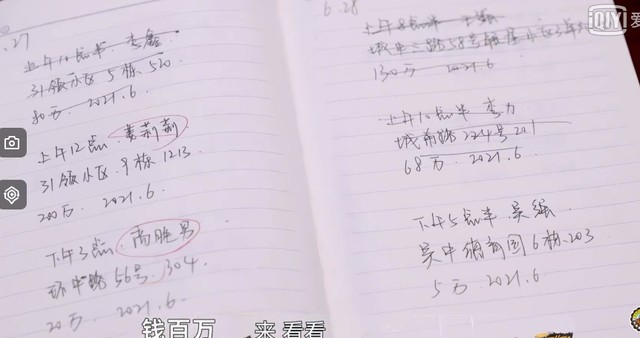 .27
上午10点半 李鑫
31领小区5栋520
80万 2021.6
上午12点 莉莉
31领小区9栋1213
200万 2021.6
下午3点 高胜男
环中路56号 1304
20万 2021.6
6.28
上午8点半
城中三路58号
130万 2021.6
上午10点半 李力
城南路224号201
68万 2021.6
下午5点半 吴
吴中 6栋203
5万 2021.6
iQIYI 爱
钱百万 来看看